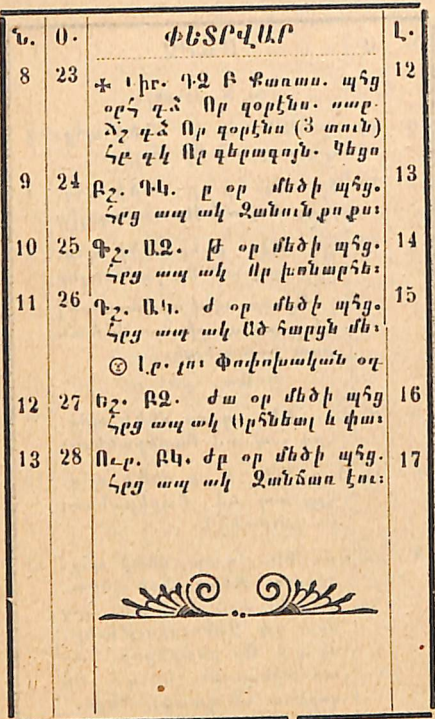 Ն. Օ. ՓԵՏՐՎԱՐ Լ.
8 23 ✢ Կիր. ԴՁ Բ Քառաս. պհց 12
օրհ գձ Որ զօրէնս. սար.
Ճշ գձ Որ զօրէնս (3 տուն)
Հր գկ Որ գերագոյն. Կեցո
9 24 Բշ. ԴԿ. ը օր մեծի պհց. 13
Հրց ապ ակ Զանունքո քս։
10 25 Գշ. ԱՁ. թ օր մեծի պհց. 14
Հրց ապ ակ Որ խոնարհե։
11 26 Դշ. ԱԿ. ժ օր մեծի պհց. 15
Հրց ապ ակ Ած հարցն մե։
Լր. լու Փոփոխական օդ
12 27 Եշ. ԲՁ. ժա օր մեծի պհց 16
Հրց ապ ակ Օրհնեալ և փա։
13 28 Ուր. ԲԿ. ժբ օր մեծի պհց. 17
Հրց ապ ակ Զանճառ էու։